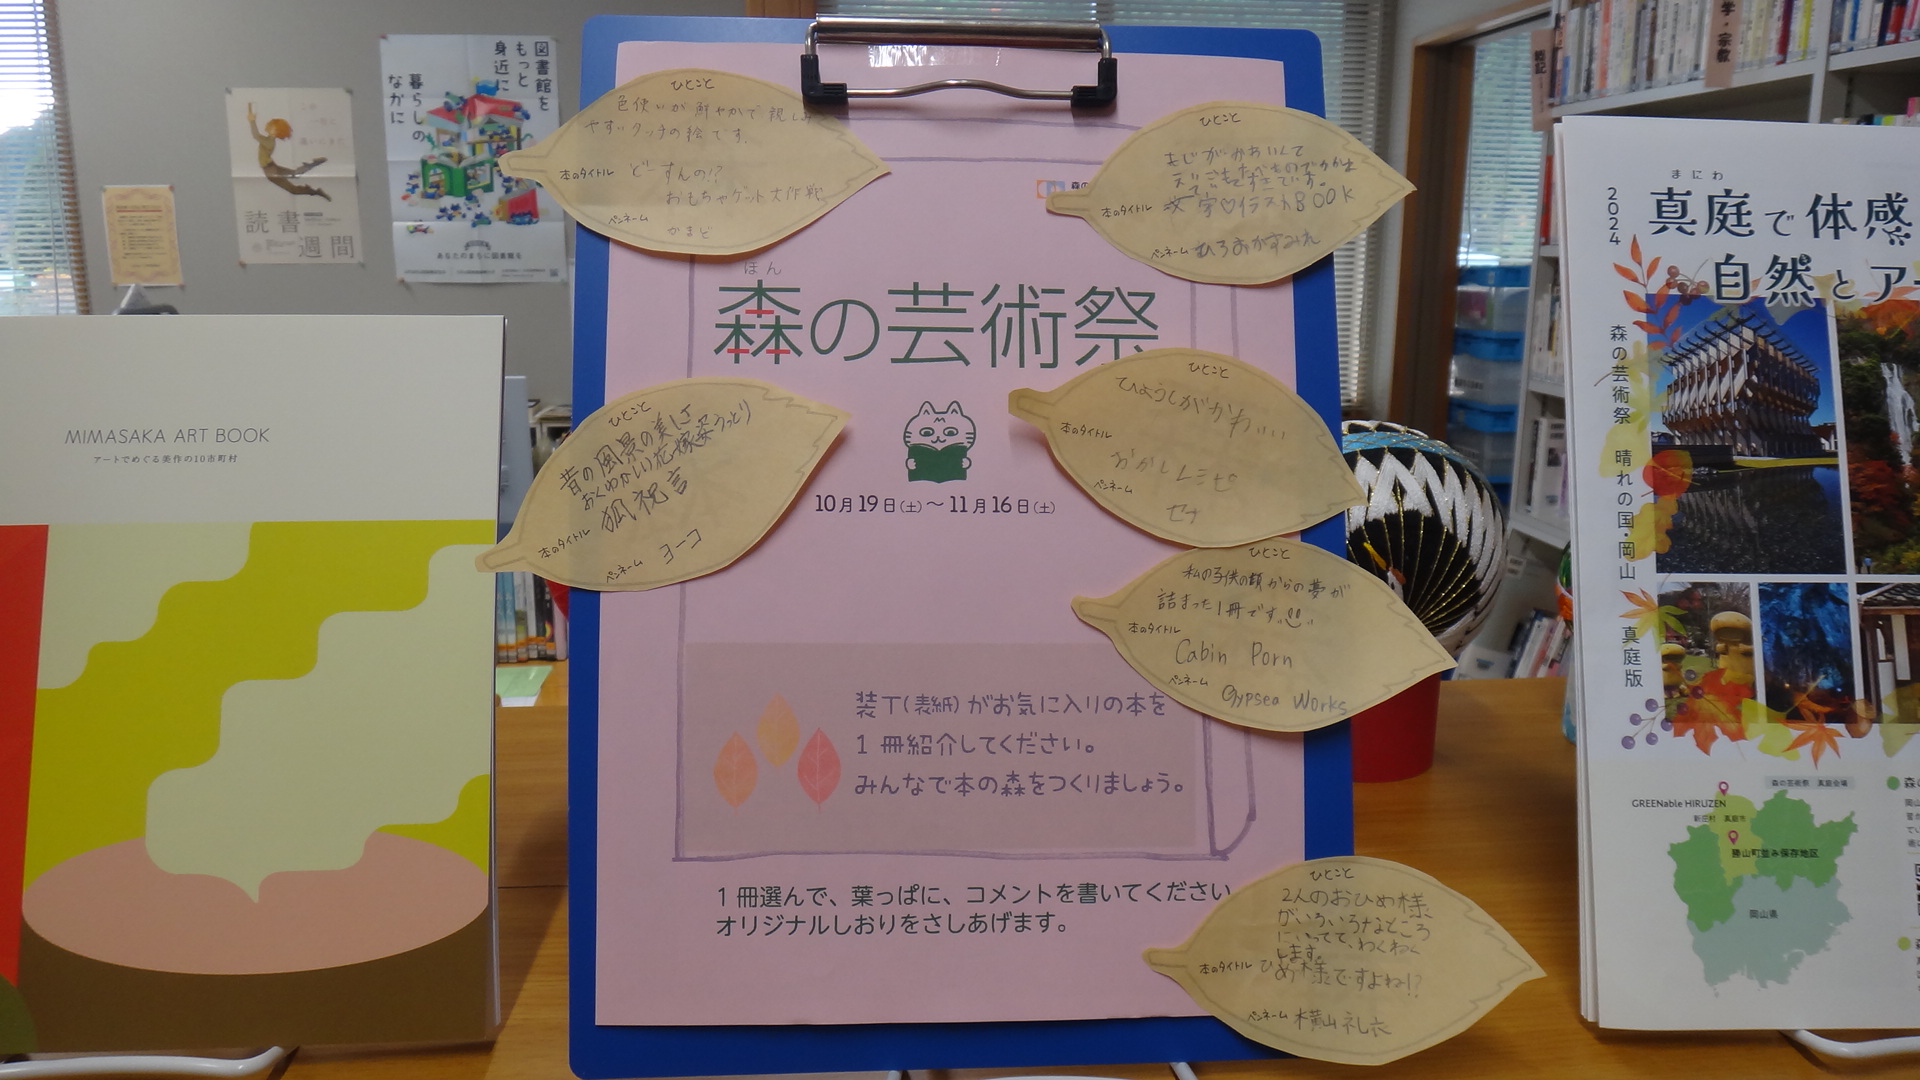 図書館を
もっと
身近に
暮らしの
なかに
あなたのまちに図書館を
読書
週間
MIMASAKA ART BOOK
アートでめぐる美作の10市町村
ひとこと
色使いが鮮やかで親しみ
やすいタッチの絵です。
本のタイトル どーすんの!?
おもちゃゲット大作戦
ペンネーム
かまど
ひとこと
本のタイトル 文字♡イラストBOOK
ペンネーム ひろおかすみれ
ほん
森の芸術祭
10月19日(土)～11月16日(土)
ひとこと
昔の風景の美しさ
おくゆかしい花嫁姿うっとり
本のタイトル 狐祝言
ペンネーム ヨーコ
ひとこと
ひょうしがかわいい
本のタイトル
おかしレシピ
ペンネーム
セナ
ひとこと
私の子供の頃からの夢が
詰まった1冊です。
本のタイトル
Cabin Porn
ペンネーム
Gypsea Works
装丁(表紙)がお気に入りの本を
1冊紹介してください。
みんなで本の森をつくりましょう。
1冊選んで、葉っぱに、コメントを書いてください
オリジナルしおりをさしあげます。
ひとこと
2人のおひめ様
がいろいろなところ
にいってて、わくわく
します。
本のタイトル ひめ様ですよね!?
ペンネーム 横山礼衣
学・宗教
2024
まにわ
真庭で体感
自然とアー
森の芸術祭 晴れの国・岡山 真庭版
森の芸術祭 真庭会場
GREENable HIRUZEN
新庄村 真庭市
勝山町並み保存地区
岡山県